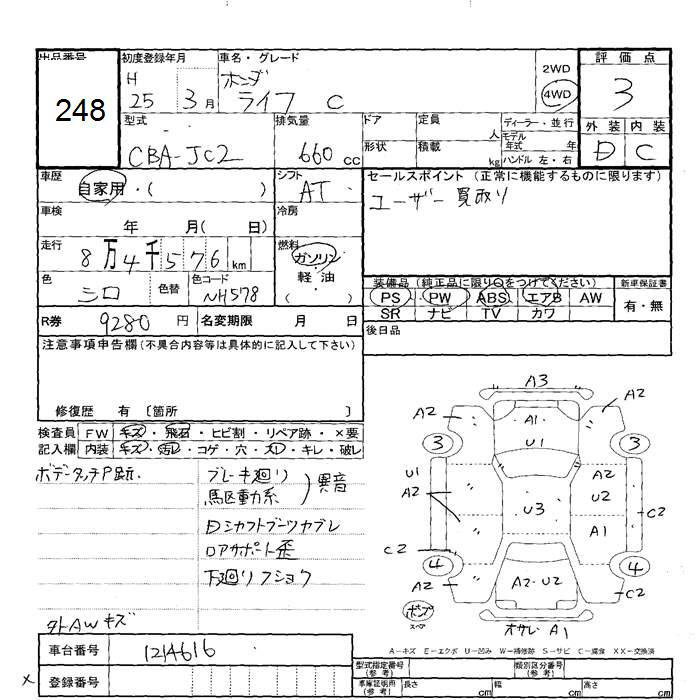 出品番号 初度登録年月 車名・グレード 評価点
248
H 25 3月
ホンダ ライフ C
2WD
4WD
3
型式 排気量 ドア 定員 人 ディーラー・並行 外装 内装
CBA-JC2 660cc
形状 積載 kg モデル年式 年
ハンドル 左・右
D C
車歴 シフト セールスポイント (正常に機能するものに限ります)
自家用・( ) AT
ユーザー買取り
車検 冷房
年 月( 日)
走行 燃料
8万4千576km ガソリン・軽・油 ( )
色 色替 色コード
シロ NH578
装備品 (純正品に限り○をつけてください) 新車保証書
PS PW ABS エアB AW 有・無
SR ナビ TV カワ
R券 9280円 名変期限 月 日
後日品
注意事項申告欄 (不具合内容等は具体的に記入して下さい)
修復歴 有 〔箇所 〕
検査員 FW キズ・飛石・ヒビ割・リペア跡・×要
記入欄 内装 キズ・汚レ・コゲ・穴・スレ・キレ・破レ
ボデータッチP跡.
ブレーキ廻り
馬区動系 異音
Dシャフトブーツカブレ
ロアサポート歪
下廻りフショク
外AWキズ
車台番号 1214616
× 登録番号
A3
A2 A1 A2
U1
3 3
U1 A2
A2 U2
U3
A1 C2
C2
4 4
A2 A2-U2 C2
ボンプ スペア
オサレ A1
A－キズ E－エクボ U－凹み W－補修跡 S－サビ C－腐食 XX－交換済
型式指定番号 (参考) 類別区分番号 (参考)
車庫証明用 (参考) 長さ cm 幅 cm 高さ cm